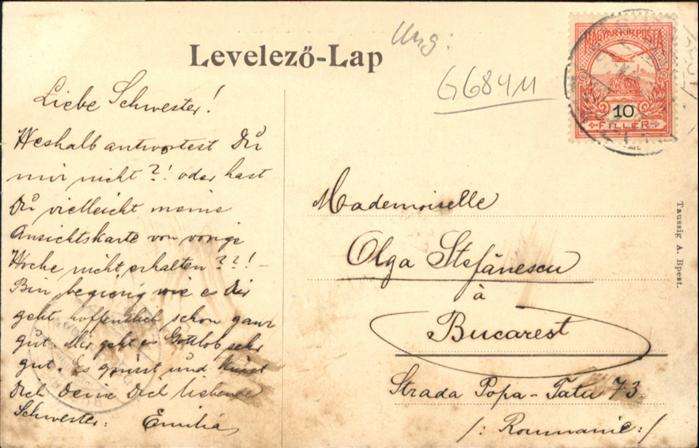 Levelező-Lap
Ung:
G684M
MAGYAR KIR. POSTA
10
FILLÉR
Liebe Schwester!
Weshalb antwortest Du
mir nicht?! oder hast
Du vielleicht meine
Ansichtskarte von vorige
Woche nicht erhalten??!–
Bin begierig wie es Dir
geht, hoffentlich schon ganz
gut. Mir geht es Gottlob sehr
gut. Es grüsst und küsst
Dich Deine Dich liebende
Schwester: Emilia
Mademoiselle
Olga Stefănescu
à
Bucarest
Strada Popa-Tatu 73.
/: Roumanie:/
Taussig A. Bpest.